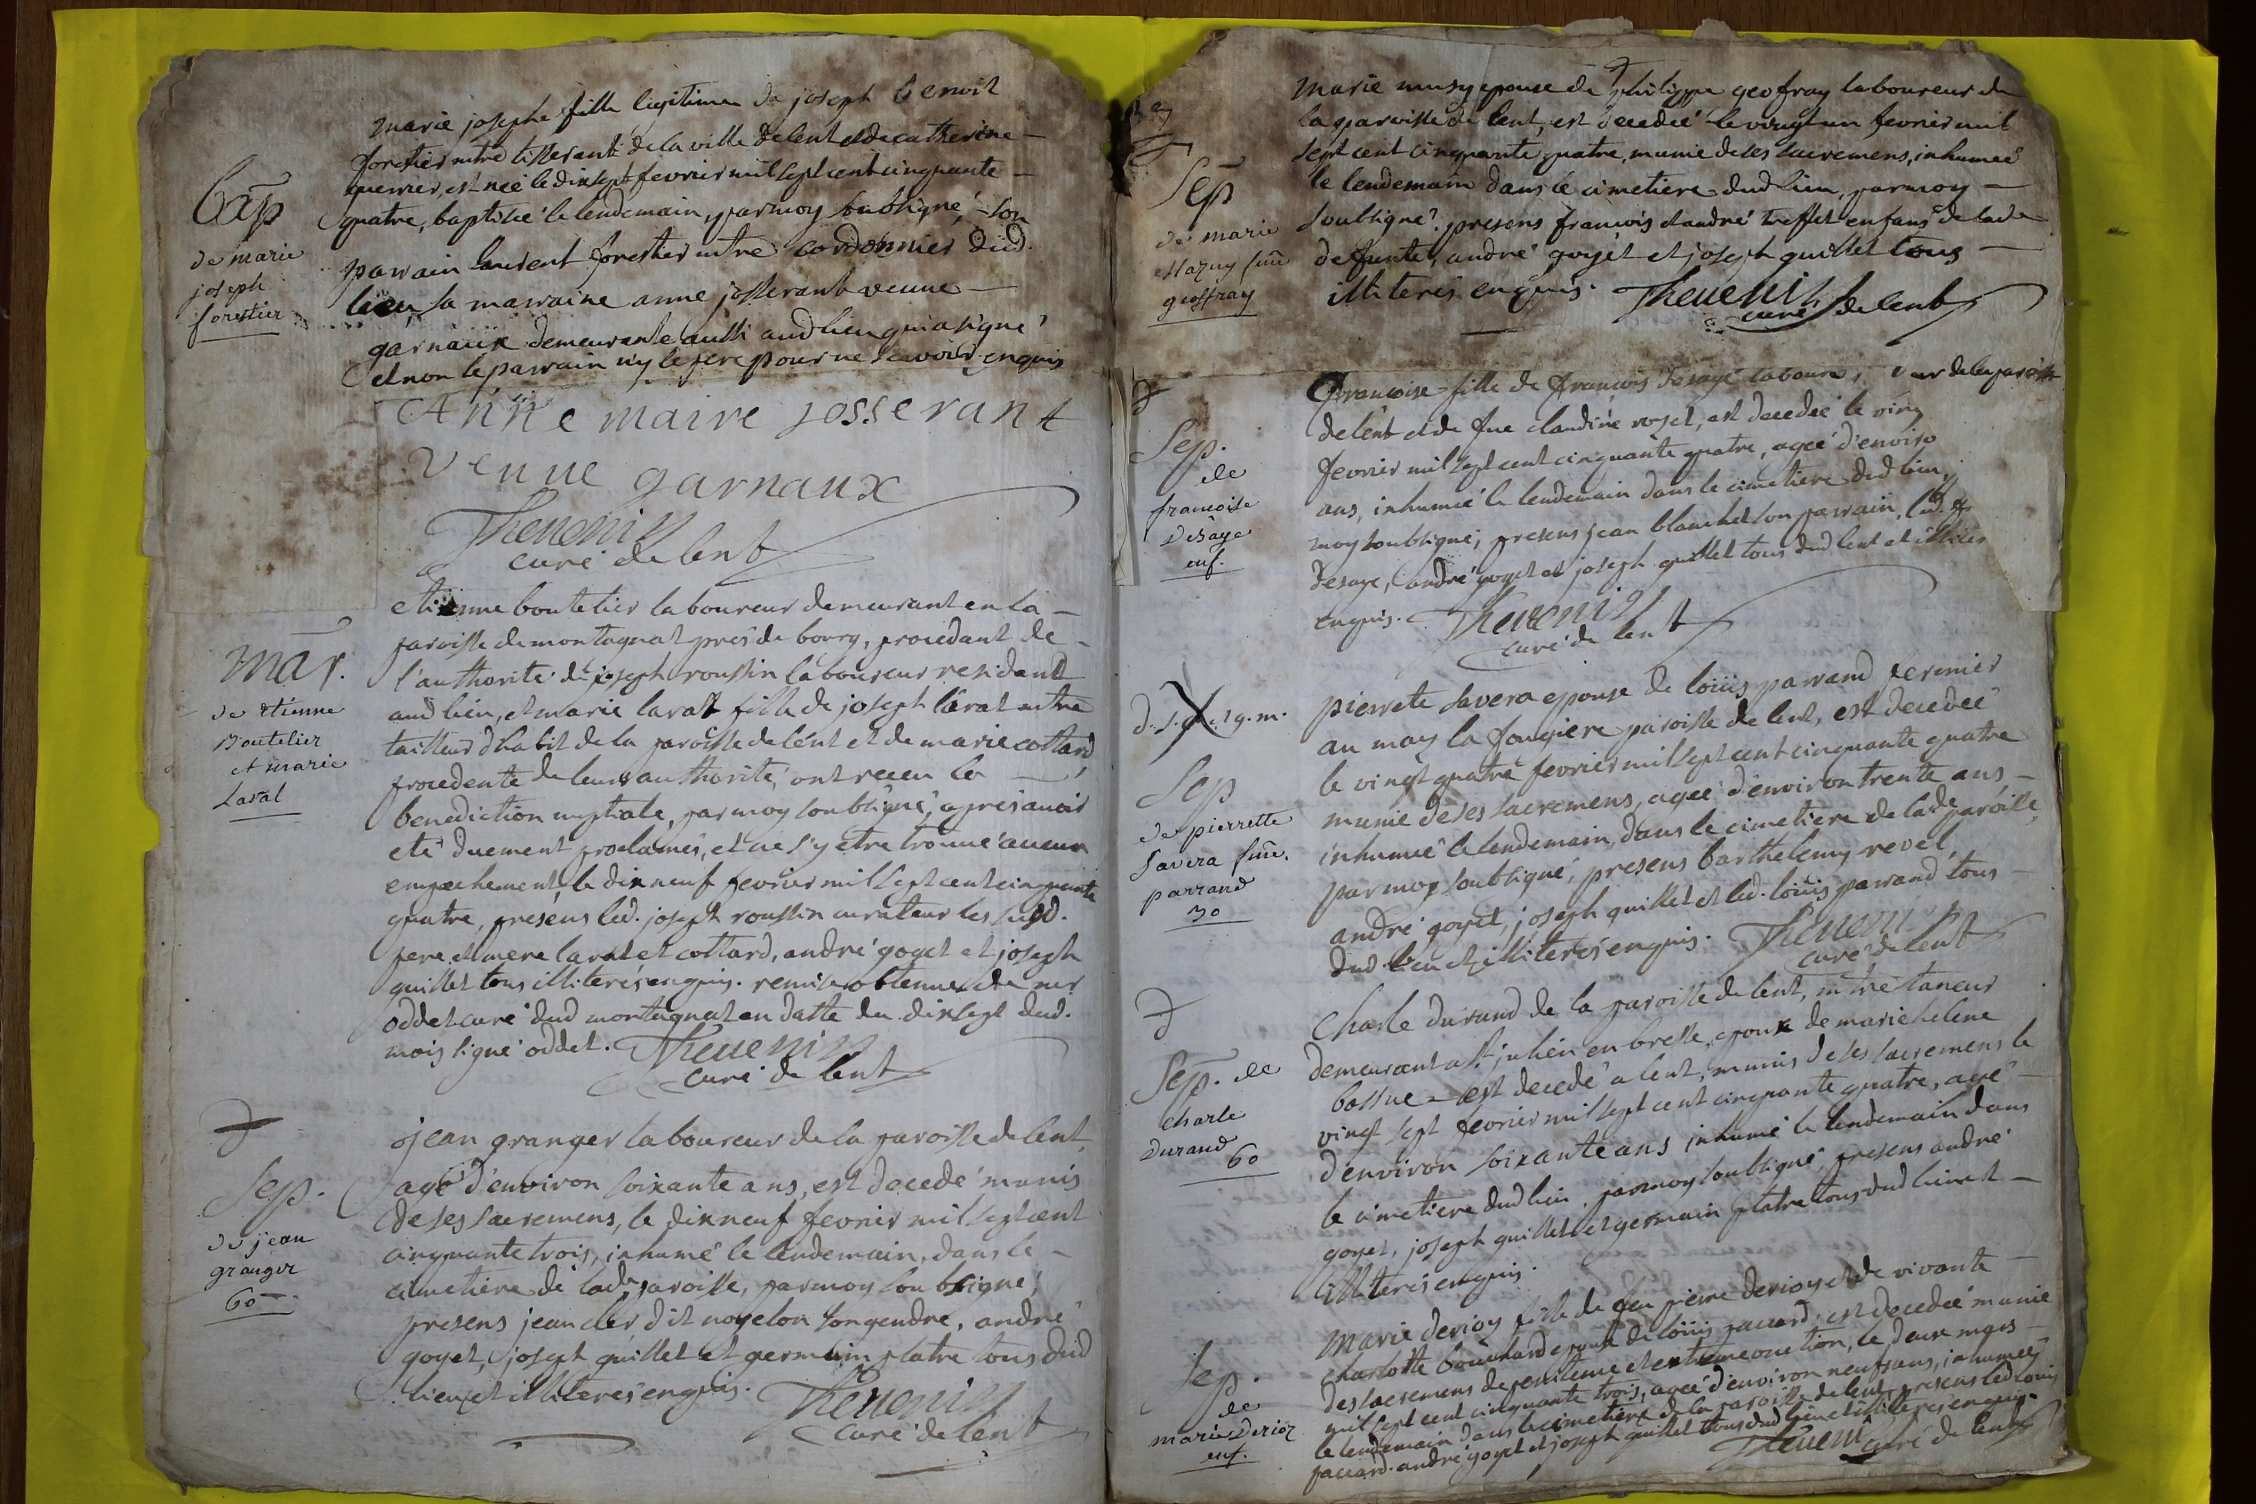 Bap
de marie
joseph
forestier
marie josephe fille legitime de joseph benoit
forestier mtre tisserant de la ville de lent et de catherine
querrier, est née le dixsept fevrier mil sept cent cinquante
quatre, baptisée le lendemain, par moy soubsigné, son
parrain laurent forestier mtre cordonnier dud.
lieu, sa marraine anne josserant veuve
garnaux demeurante aussi aud lieu qui a signé
et non le parrain n'y le pere pour ne scavoir enquis
Anne maire josserant
veuve garnaux
Thevenin
curé de lent
mar.
de etienne
Boutelier
et marie
Larat
etienne boutelier laboureur demeurant en la
paroisse de montagnat pres de bourg, procedant de
l'authorité de joseph roussin laboureur residant
aud lieu, et marie larat fille de joseph larat mtre
tailleur d'habit de la paroisse de lent et de marie cottard
procedente de leurs authorité, ont receu la
benediction nuptiale, par moy soubsigné, apres avoir
eté duement proclamés, et ne s'y etre trouvé aucun
empechement, le dix neuf fevrier mil sept cent cinquante
quatre, presens led. joseph roussin curateur les susd.
pere et mere larat et cottard, andré goyet et joseph
quillet tous illiterés enquis. remise obtenue de mr
oddet curé dud montagnat en datte du dixsept dud.
mois signé oddet. Thevenin
curé de lent
Sep.
de jean
granger
60
jean granger laboureur de la paroisse de lent,
agé d'environ soixante ans, est decedé munis
de ses sacremens, le dix neuf fevrier mil sept cent
cinquante trois, inhumé le lendemain, dans le
cimetiere de lade paroisse, par moy soubsigné,
presens jean dit noyelon son gendre, andré
goyet, joseph quillet et germain platre tous dud
lieu et illiterés enquis. Thevenin
curé de lent
Sep
de marie
fme
geoffray
marie musy epouse de philippe geofray laboureur de
la paroisse de lent, est decedée le vingt un fevrier mil
sept cent cinquante quatre, munie de ses sacremens, inhumeé
le lendemain dans le cimetiere dud lieu, par moy
soubsigné. presens francois et andré treffet enfans de lade
defunte, andré goyet et joseph quillet tous
illiterés enquis. Thevenin
curé de lent
Sep.
de
francoise
Desaye
enf.
francoise fille de francois desaye laboureur de la paroisse
de lent et de fue claudine royet, est decedeé le ving
fevrier mil sept cent cinquante quatre, ageé d'enviro
ans, inhumée le lendemain dans le cimetiere dud lieu,
moy soubsigné, presens jean blanchet son parrain, led. fr
desaye, andré goyet et joseph quillet tous dud lent et illiter
enquis. Thevenin
curé de lent
Sep
de pierrette
Savera fme.
parrand
30
pierrete savera epouse de loüis parrand fermier
au may la fougere paroisse de lent, est decedeé
le vingt quatre fevrier mil sept cent cinquante quatre
munie de ses sacremens, ageé d'environ trente ans
inhumeé le lendemain, dans le cimetiere de lade paroisse,
par moy soubsigné, presens barthelemy revel,
andré goyet, joseph quillet et led. loüis parrand tous
dud lieu et illiterés enquis. Thevenin
curé de lent
Sep. de
charle
Durand
60
Charle durand de la paroisse de lent, mtre taneur
demeurant a st julien en bresse, epoux de marie helene
bossue est decedé a lent, munis de ses sacremens le
vingt sept fevrier mil sept cent cinquante quatre, agé
d'environ soixante ans inhumé le lendemain dans
le cimetiere dud lieu par moy soubsigné, presens andré
goyet, joseph quillet et germain platre tous dud lieu et
illiterés enquis.
Sep.
de
marie Derioz
enf.
marie derioy fille de feu pierre derioy et de vivante
charlotte bouchard epouse de loüis jaccard, est decedeé munie
des sacremens de penitence et extreme onction, le deux mars
mil sept cent cinquante trois, ageé d'environ neuf ans, inhumeé
le lendemain dans le cimetiere de la paroisse de lent, presens led loüis
jaccard, andré goyet et joseph quillet tous dud lieu et illiterés enquis.
Thevenin curé de lent